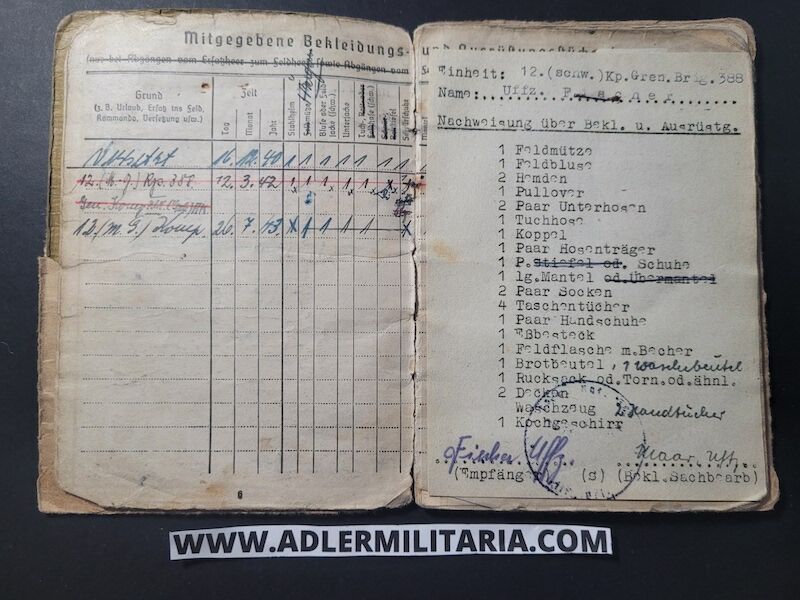 Mitgegebene Bekleidungs- und Ausrüstungsstücke
(nur bei Abgängen vom Ersatzheer zum Feldheer sowie Abgängen vom
Grund
(z. B. Urlaub, Ersatz ins Feld,
Kommando, Versetzung usw.)
Zeit
Tag
Monat
Jahr
Stahlhelm
Feldmütze
Bluse oder Feld-
jacke (schw.)
Unterjacke
Tuch-
hose (schw.)
16. 12. 40 1 1 1 1 1 1 1
12. (M.-G.) Kp. 388. 12. 3. 42 1 1 1 1 1
12. (M.G.) Komp. 26. 7. 43. 1 1 1
6
Einheit: 12.(schw.)Kp.Gren.Brig.388
Name: Uffz. F i s c h e r
Nachweisung über Bekl. u. Ausrüstg.
1 Feldmütze
1 Feldbluse
2 Hemden
1 Pullover
2 Paar Unterhosen
1 Tuchhose
1 Koppel
1 Paar Hosenträger
1 P.Stiefel od. Schuhe
1 lg.Mantel od.Übermantel
2 Paar Socken
4 Taschentücher
1 Paar Handschuhe
1 Eßbesteck
1 Feldflasche m.Becher
1 Brotbeutel, 1 Waschbeutel
1 Rucksack od.Torn.od.ähnl.
2 Decken
Waschzeug 2 Handtücher
1 Kochgeschirr
Fischer Uffz.
(Empfänger) (S) (Bekl.Sachbearb)
WWW.ADLERMILITARIA.COM